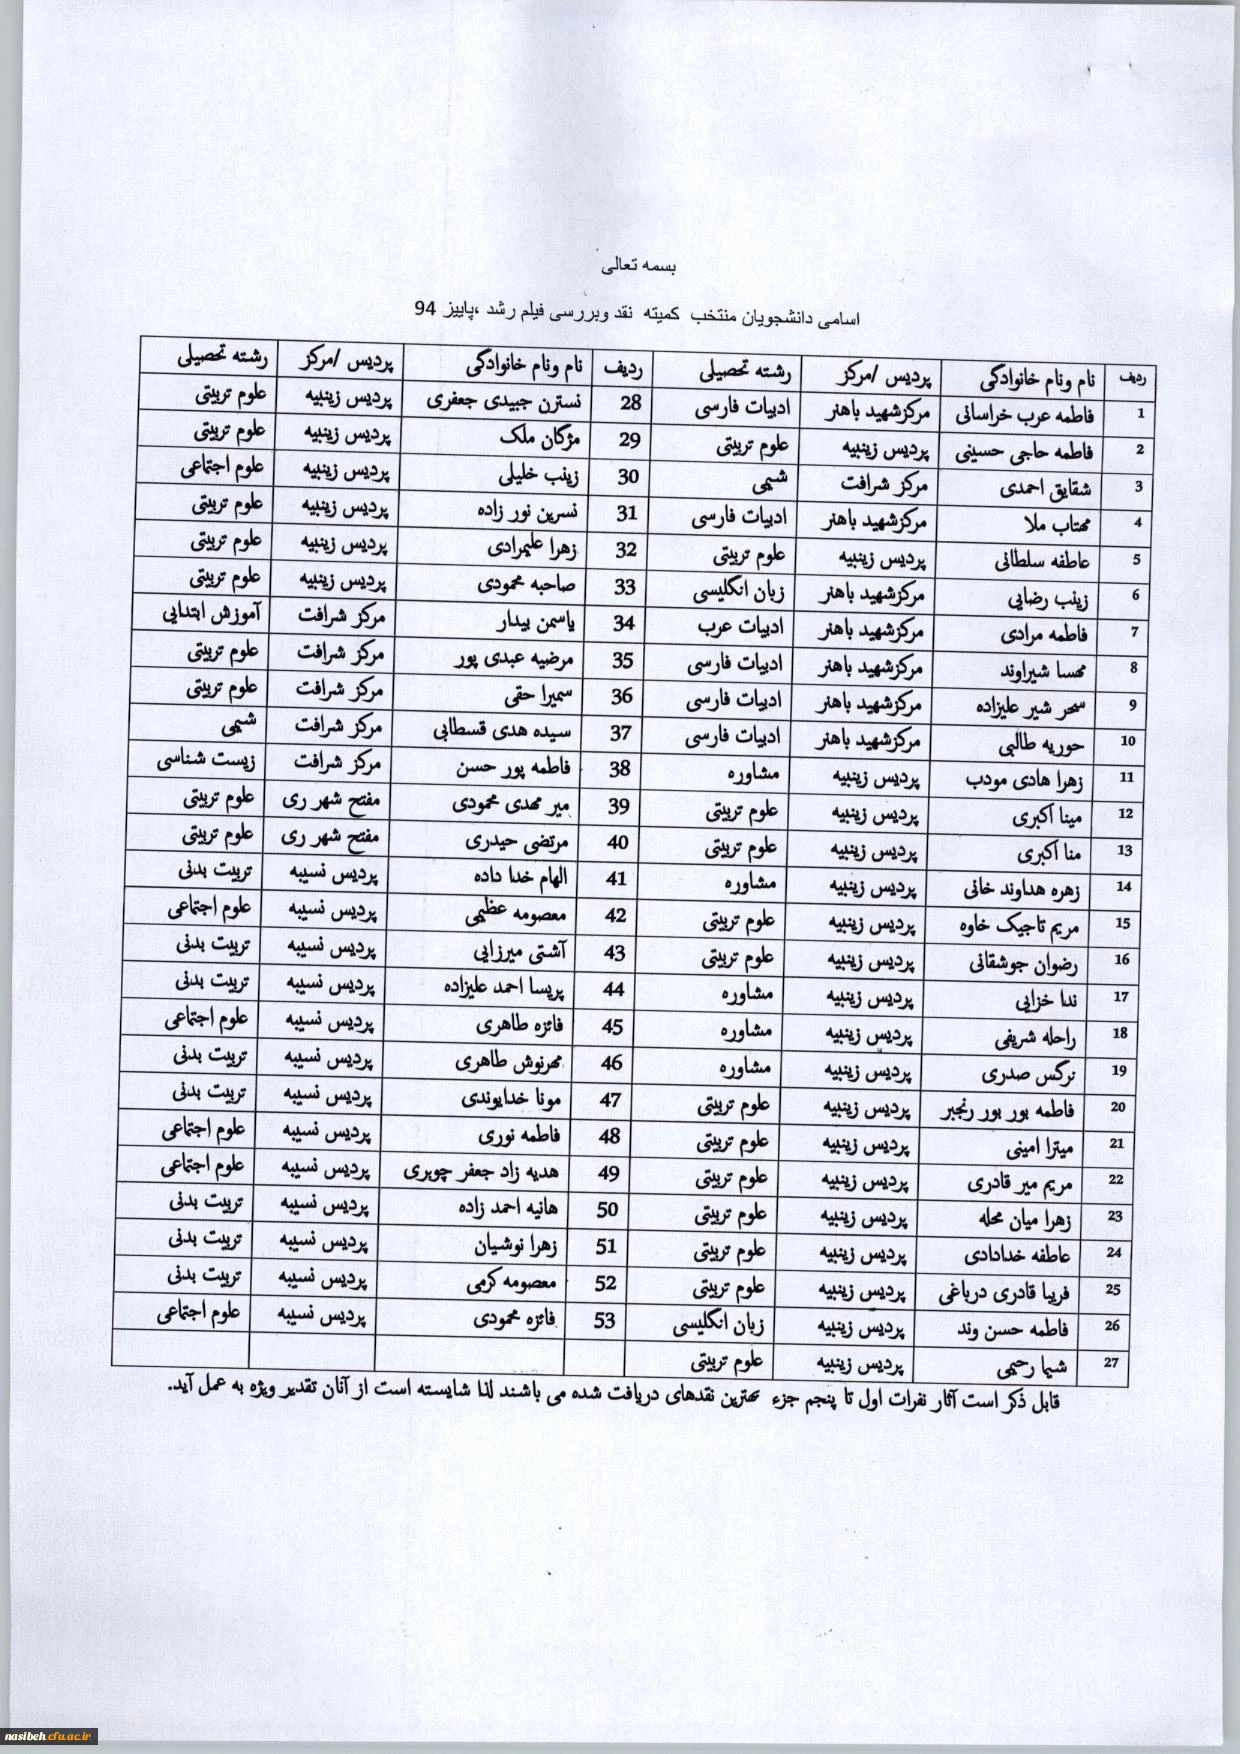 بسمه تعالی
اسامی دانشجویان منتخب کمیته نقد وبررسی فیلم رشد ،پاییز 94
ردیف نام ونام خانوادگی پردیس /مرکز رشته تحصیلی ردیف نام ونام خانوادگی پردیس /مرکز رشته تحصیلی
1 فاطمه عرب خراسانی مرکزشهید باهنر ادبیات فارسی 28 نسترن جبیدی جعفری پردیس زینبیه علوم تربیتی
2 فاطمه حاجی حسینی پردیس زینبیه علوم تربیتی 29 مژگان ملک پردیس زینبیه علوم تربیتی
3 شقایق احمدی مرکز شرافت شیمی 30 زینب خلیلی پردیس زینبیه علوم اجتماعی
4 مهتاب ملا مرکزشهید باهنر ادبیات فارسی 31 نسرین نور زاده پردیس زینبیه علوم تربیتی
5 عاطفه سلطانی پردیس زینبیه علوم تربیتی 32 زهرا علیمرادی پردیس زینبیه علوم تربیتی
6 زینب رضایی مرکزشهید باهنر زبان انگلیسی 33 صاحبه محمودی پردیس زینبیه علوم تربیتی
7 فاطمه مرادی مرکزشهید باهنر ادبیات عرب 34 یاسمن بیدار مرکز شرافت آموزش ابتدایی
8 مهسا شیراوند مرکزشهید باهنر ادبیات فارسی 35 مرضیه عبدی پور مرکز شرافت علوم تربیتی
9 سحر شیر علیزاده مرکزشهید باهنر ادبیات فارسی 36 سمیرا حقی مرکز شرافت علوم تربیتی
10 حوریه طالبی مرکزشهید باهنر ادبیات فارسی 37 سیده هدی قسطابی مرکز شرافت شیمی
11 زهرا هادی مودب پردیس زینبیه مشاوره 38 فاطمه پور حسن مرکز شرافت زیست شناسی
12 مینا اکبری پردیس زینبیه علوم تربیتی 39 میر مهدی محمودی مفتح شهر ری علوم تربیتی
13 منا اکبری پردیس زینبیه علوم تربیتی 40 مرتضی حیدری مفتح شهر ری علوم تربیتی
14 زهره هداوند خانی پردیس زینبیه مشاوره 41 الهام خدا داده پردیس نسیبه تربیت بدنی
15 مریم تاجیک خاوه پردیس زینبیه علوم تربیتی 42 معصومه عظیمی پردیس نسیبه علوم اجتماعی
16 رضوان جوشقانی پردیس زینبیه علوم تربیتی 43 آشتی میرزایی پردیس نسیبه تربیت بدنی
17 ندا خزایی پردیس زینبیه مشاوره 44 پریسا احمد علیزاده پردیس نسیبه تربیت بدنی
18 راحله شریفی پردیس زینبیه مشاوره 45 فائزه طاهری پردیس نسیبه علوم اجتماعی
19 نرگس صدری پردیس زینبیه مشاوره 46 مهرنوش طاهری پردیس نسیبه تربیت بدنی
20 فاطمه بور بور رنجبر پردیس زینبیه علوم تربیتی 47 مونا خدایوندی پردیس نسیبه تربیت بدنی
21 میترا امینی پردیس زینبیه علوم تربیتی 48 فاطمه نوری پردیس نسیبه علوم اجتماعی
22 مریم میر قادری پردیس زینبیه علوم تربیتی 49 هدیه زاد جعفر چوبری پردیس نسیبه علوم اجتماعی
23 زهرا میان محله پردیس زینبیه علوم تربیتی 50 هانیه احمد زاده پردیس نسیبه تربیت بدنی
24 عاطفه خدادادی پردیس زینبیه علوم تربیتی 51 زهرا نوشیان پردیس نسیبه تربیت بدنی
25 فریبا قادری درباغی پردیس زینبیه علوم تربیتی 52 معصومه کرمی پردیس نسیبه تربیت بدنی
26 فاطمه حسن وند پردیس زینبیه زبان انگلیسی 53 فائزه محمودی پردیس نسیبه علوم اجتماعی
27 شیما رحیمی پردیس زینبیه علوم تربیتی
قابل ذکر است آثار نفرات اول تا پنجم جزء بهترین نقدهای دریافت شده می باشند لذا شایسته است از آنان تقدیر ویژه به عمل آید.
nasibeh.cfu.ac.ir